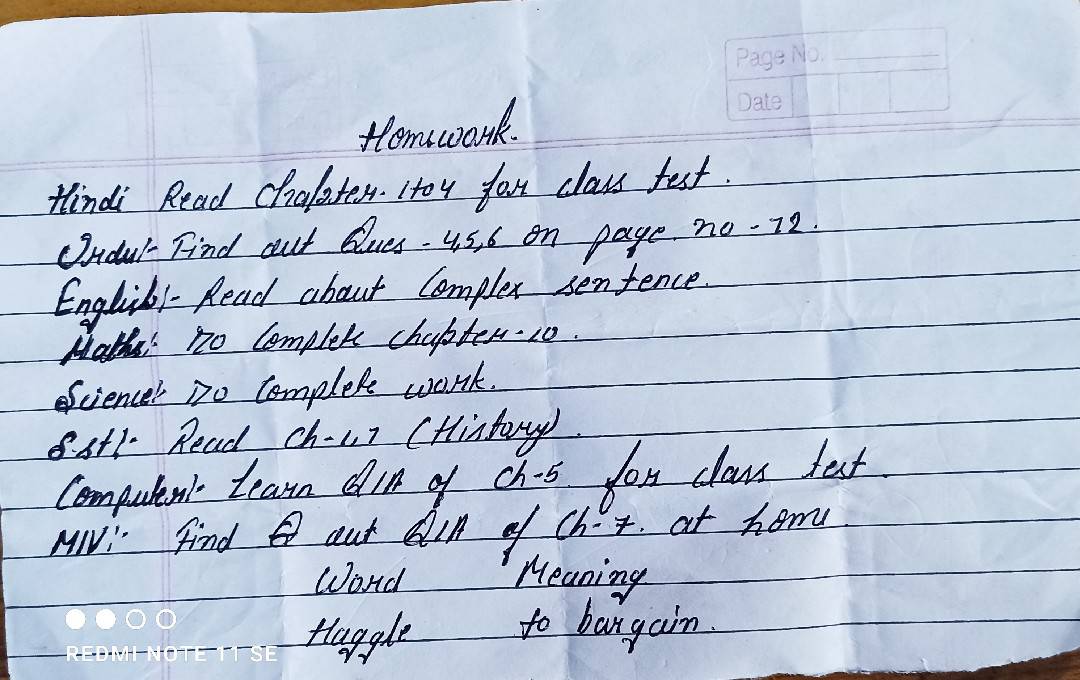 Page No.
Date
Homework.
Hindi Read Chapter. 1to4 for class test.
Urdu:- Find out Ques - 4,5,6 on page no - 72.
English:- Read about Complex sentence.
Maths: Do Complete chapter-10.
Science:- Do Complete work.
S.st:- Read Ch- (History).
Computer:- Learn Q/A of Ch-5 for class test
MIV:- Find out Q/A of Ch-7. at home.
Word Meaning
Haggle to bargain.
REDMI NOTE 11 SE